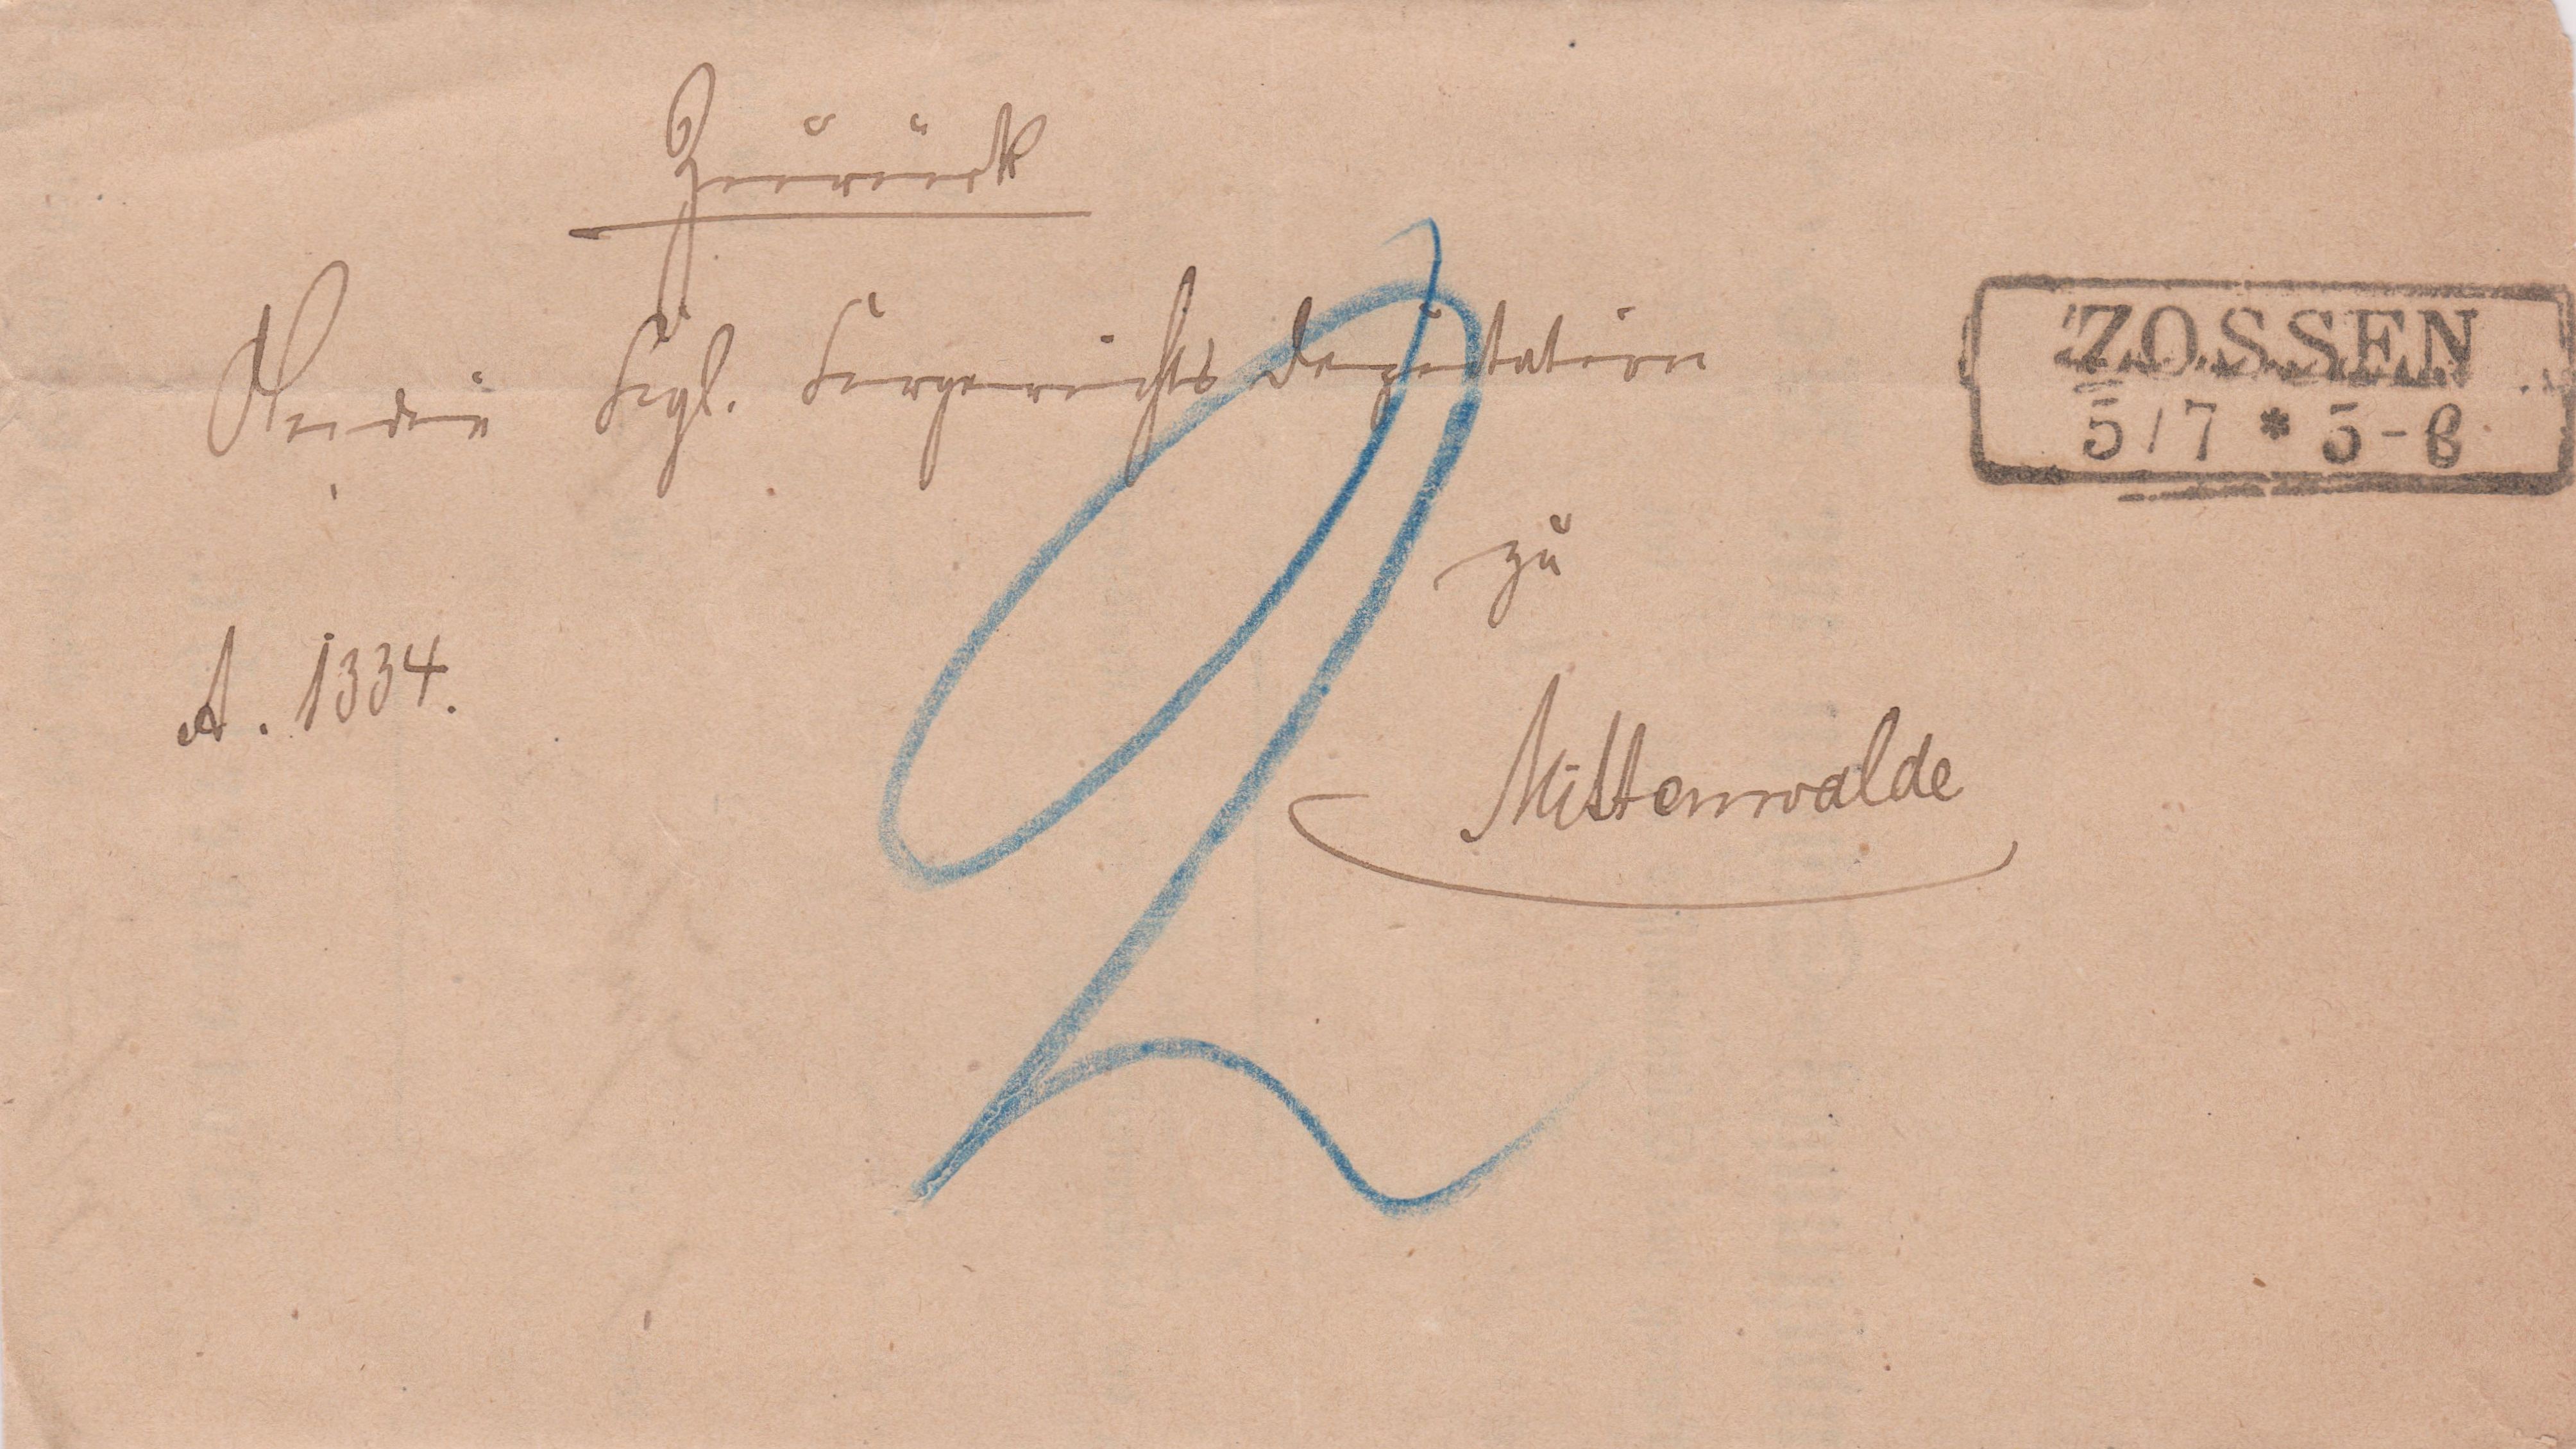 Zurück
An die Kgl. Kreisgerichts Deputation
ZOSSEN
5/7 * 5-6
zu
A. 1334.
Mittenwalde
2